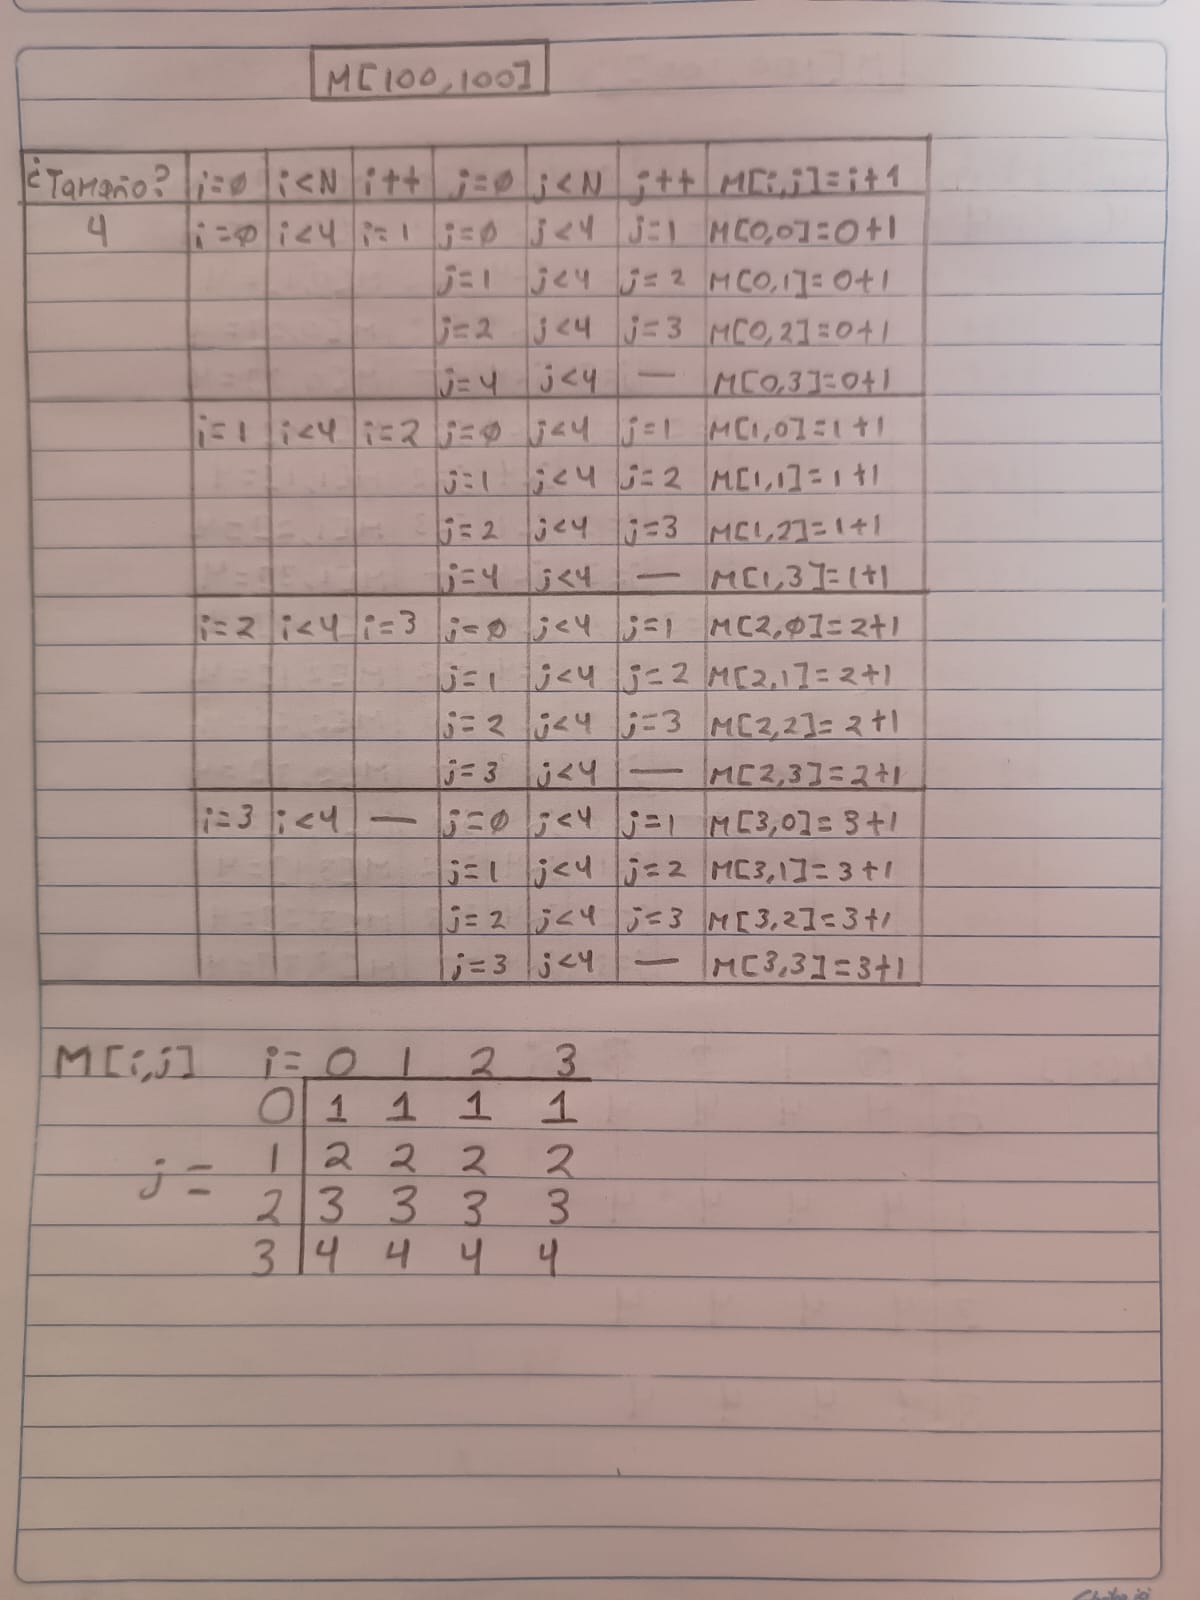 M[100,100]
¿Tamaño? i=0 i<N i++ j=0 j<N j++ M[i,j]=i+1
4 i=0 i<4 i=1 j=0 j<4 j=1 M[0,0]=0+1
j=1 j<4 j=2 M[0,1]=0+1
j=2 j<4 j=3 M[0,2]=0+1
j=4 j<4 — M[0,3]=0+1
i=1 i<4 i=2 j=0 j<4 j=1 M[1,0]=1+1
j=1 j<4 j=2 M[1,1]=1+1
j=2 j<4 j=3 M[1,2]=1+1
j=4 j<4 — M[1,3]=1+1
i=2 i<4 i=3 j=0 j<4 j=1 M[2,0]=2+1
j=1 j<4 j=2 M[2,1]=2+1
j=2 j<4 j=3 M[2,2]=2+1
j=3 j<4 — M[2,3]=2+1
i=3 i<4 — j=0 j<4 j=1 M[3,0]=3+1
j=1 j<4 j=2 M[3,1]=3+1
j=2 j<4 j=3 M[3,2]=3+1
j=3 j<4 — M[3,3]=3+1
M[i,j] i= 0 1 2 3
0 1 1 1 1
j= 1 2 2 2 2
2 3 3 3 3
3 4 4 4 4